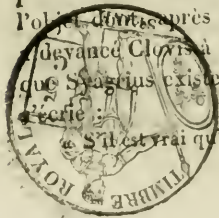 l'objet dont après
Clovis à
que Syagrius existe
s'écrie :
« S'il est vrai qu
TIMBRE ROYAL